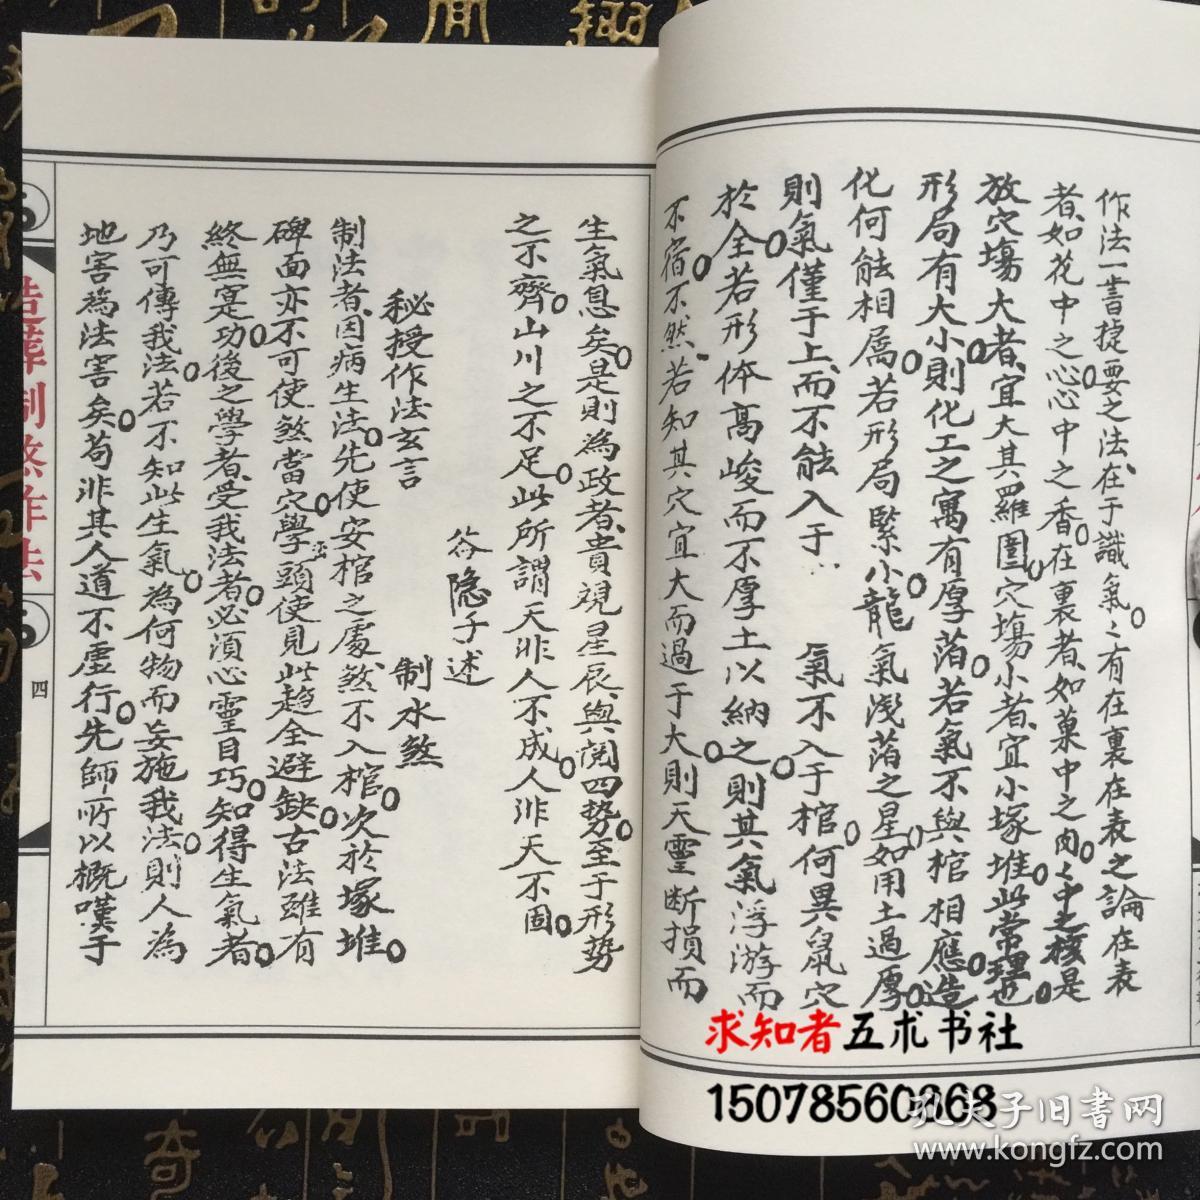 作法一書捷要之法在于識氣〻有在裏在表之論在表
者如花中之心心中之香在裏者如菓中之肉〻中之核是
放穴塲大者宜大其羅圍穴塲小者宜小塚堆此常理也
形局有大小則化工之寓有厚萡若氣不與棺相應造
化何能相属若形局緊小龍氣淺萡之星如用土過厚
則氣僅于上而不能入于 氣不入于棺何異鼠穴
於全若形体高峻而不厚土以納之則其氣浮游而
不宿不然若知其穴宜大而過于大則天靈断損而
生氣息矣是則為政者貴視星辰與閲四勢至于形勢
之不齊山川之不足此所謂天非人不成人非天不固
谷隐子述
秘授作法玄言 制水煞
制法者因病生法先使安棺之處煞不入棺次於塚堆
碑面亦不可使煞當穴學頭使見此趋全避缺古法雖有
終無寔功後之學者受我法者必湏心靈目巧知得生氣者
乃可傳我法若不知此生氣為何物而妄施我法則人為
地害為法害矣苟非其人道不虛行先師所以概嘆于
造葬制煞作法
四
求知者五术书社
15078560868
孔夫子旧书网
www.kongfz.com